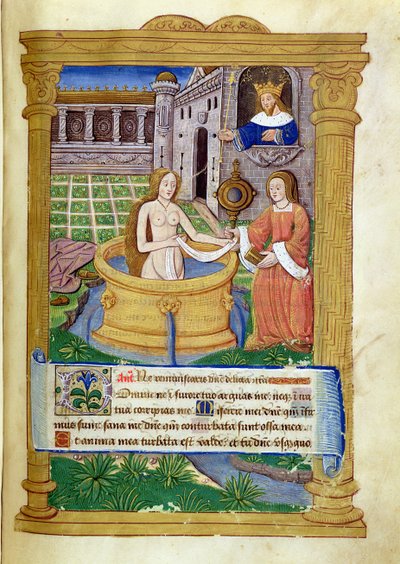 Ant. Ne reminiscaris dñe delicta nřa
Domine ne ī furore tuo arguas me: neqz ī ira
tua corripias me. Miserere mei dñe qm̄ ifir
mus sum: sana me dñe qm̄ conturbata sunt ossa mea.
Et anima mea turbata est valde: et tu dñe vsqzquo.